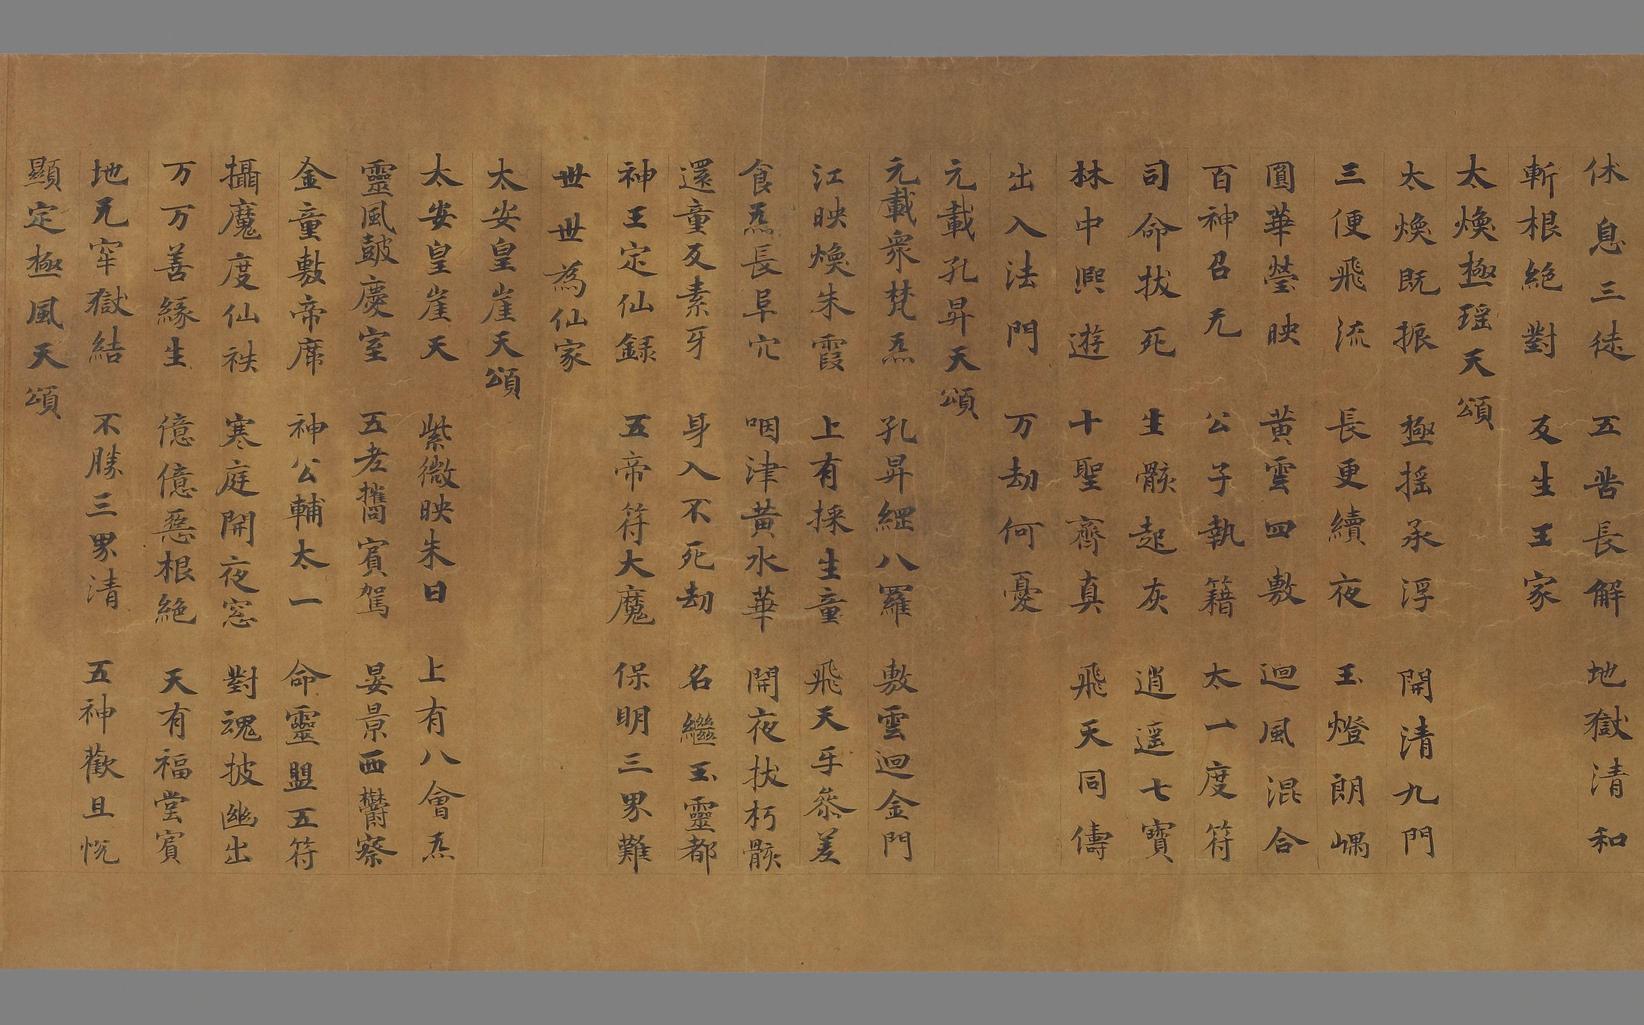 休息三徒 五苦長解 地獄清和
斬根絶對 友生王家
太煥極瑶天頌
太煥既振 極摇承浮 開清九門
三便飛流 長更續夜 玉燈朗嵎
圓華瑩映 黄雲四敷 迴風混合
百神召无 公子執籍 太一度符
司命拔死 生骸起灰 逍遥七寶
林中熙遊 十聖齊真 飛天同儔
出入法門 万劫何憂
元載孔昇天頌
元載衆梵炁 孔昇纒八羅 敷雲迴金門
江映煥朱霞 上有採生童 飛天乎叅差
食炁長阜穴 咽津黄水華 開夜拔朽骸
還童反素牙 身入不死劫 名繼玉靈都
神王定仙録 五帝符大魔 保明三界難
世世為仙家
太安皇崖天頌
太安皇崖天 紫微映朱日 上有八會炁
靈風鼓慶室 五老攜賓駕 晏景西欝察
金童敷帝席 神公輔太一 命靈盟五符
攝魔度仙袟 寒庭開夜窓 對魂披幽出
万万善緣生 億億惡根絶 天有福堂賓
地无牢獄結 不勝三界清 五神歡且悦
顯定極風天頌